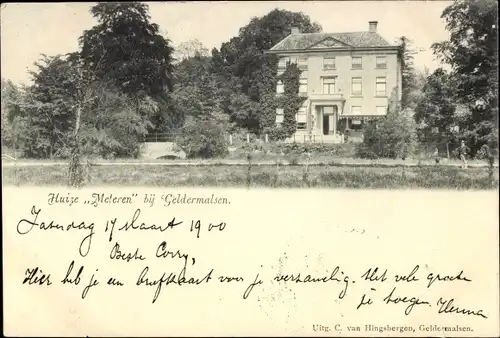 Huize „Meteren" bij Geldermalsen.
Zaterdag 17 Maart 1900
Beste Corry,
Hier heb je een briefkaart voor je verzameling. Met vele groete
je toegen. Herma
Uitg. C. van Hingsbergen, Geldermalsen.